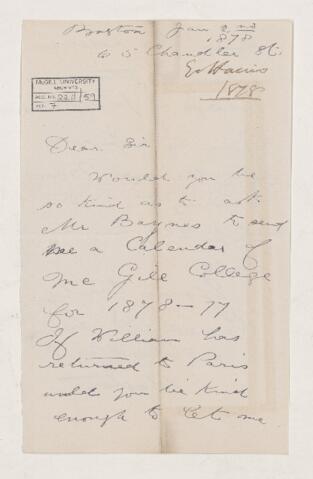 Boston Jan 2nd
1878
65 Chandler St.
1878
McGILL UNIVERSITY
ARCHIVES
ACC. NO. 2211/59
REF. 7
Dear Sir
Would you be
so kind as to ask
Mr Baynes to send
me a Calendar of
Mc Gill College
for 1878-77
If William has
returned to Paris
would you be kind
enough to let me